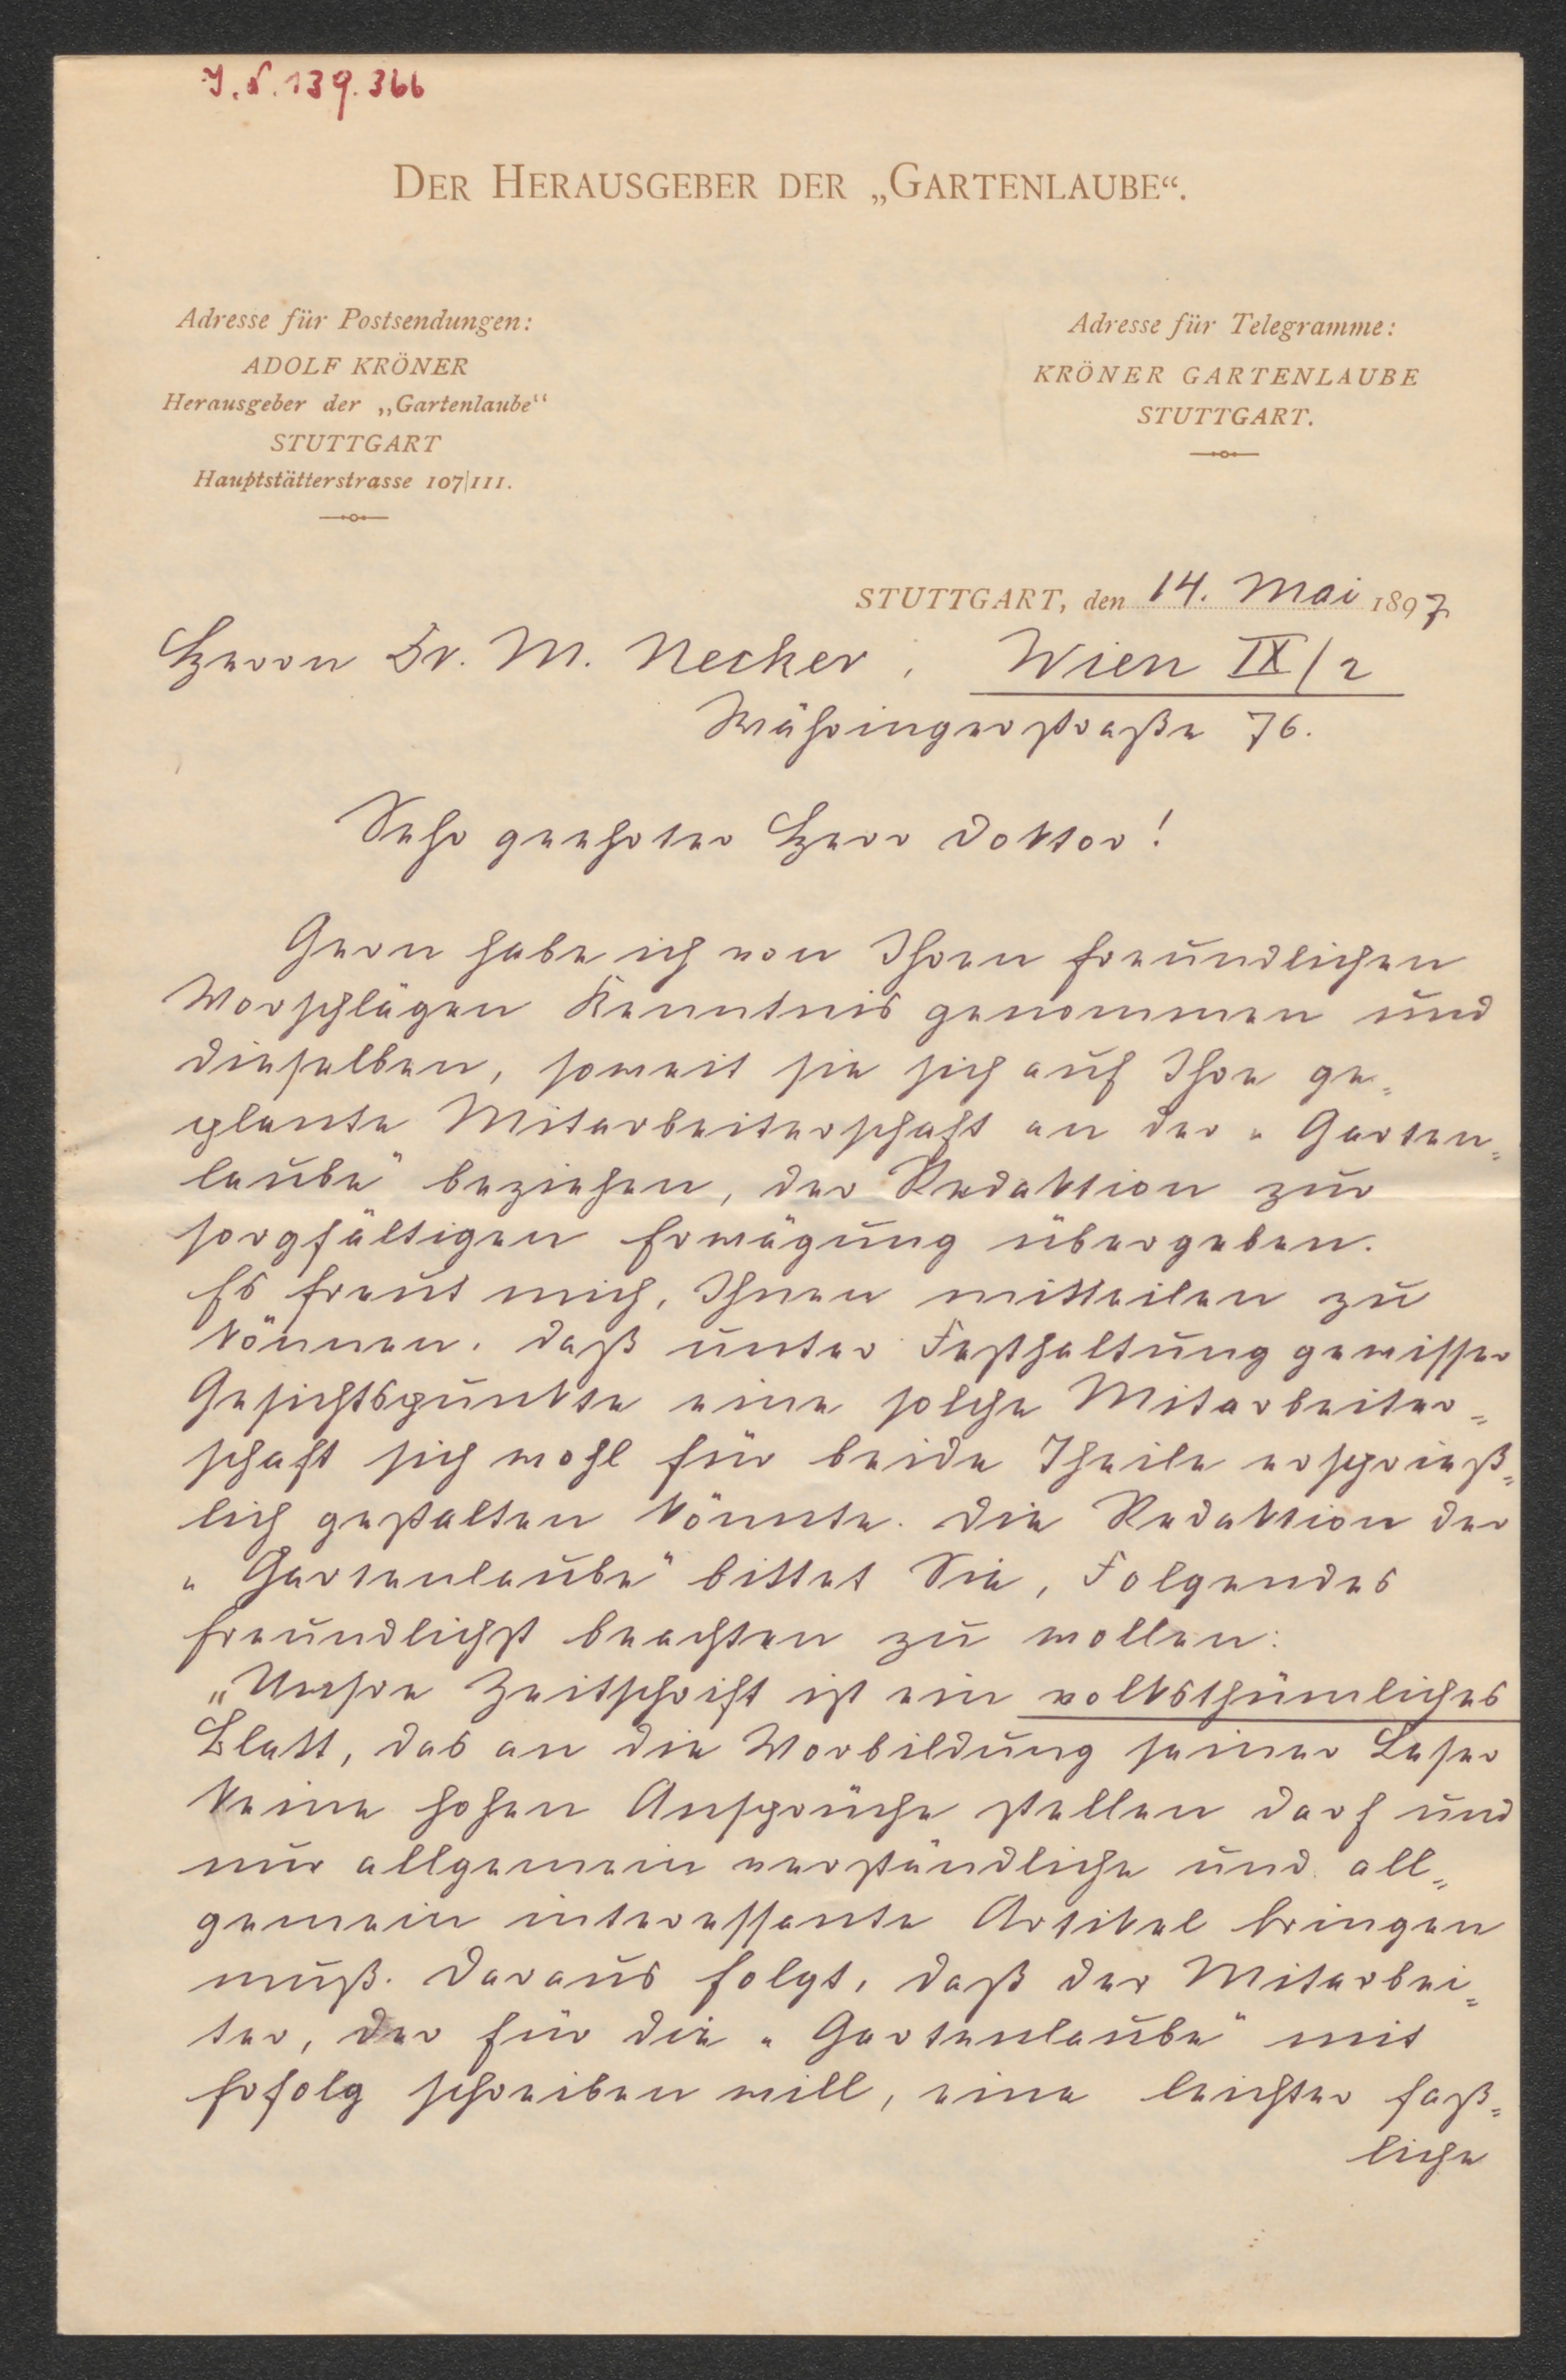 J.N. 139.366
DER HERAUSGEBER DER „GARTENLAUBE“.
Adresse für Postsendungen:
ADOLF KRÖNER
Herausgeber der „Gartenlaube“
STUTTGART
Hauptstätterstrasse 107|III.
Adresse für Telegramme:
KRÖNER GARTENLAUBE
STUTTGART.
STUTTGART, den 14. Mai 1897
Herrn Dr. M. Necker, Wien IX/2
Währingerstraße 76.
Sehr geehrter Herr Doktor!
Gern habe ich von Ihren freundlichen
Vorschlägen Kenntnis genommen und
dieselben, soweit sie sich auf Ihre ge=
plante Mitarbeiterschaft an der „Garten=
laube“ beziehen, der Redaktion zur
sorgfältigen Erwägung übergeben.
Es freut mich, Ihnen mitteilen zu
können, daß unter Festhaltung gewisser
Gesichtspunkte eine solche Mitarbeiter=
schaft sich wohl für beide Theile ersprieß=
lich gestalten könnte. Die Redaktion der
„Gartenlaube“ bittet Sie, Folgendes
freundlichst beachten zu wollen:
„Unsre Zeitschrift ist ein volksthümliches
Blatt, das an die Vorbildung seiner Leser
keine hohen Ansprüche stellen darf und
nur allgemein verständliche und all=
gemein interessante Artikel bringen
muß. Daraus folgt, daß der Mitarbei=
ter, der für die „Gartenlaube“ mit
Erfolg schreiben will, eine leichter faß=
liche